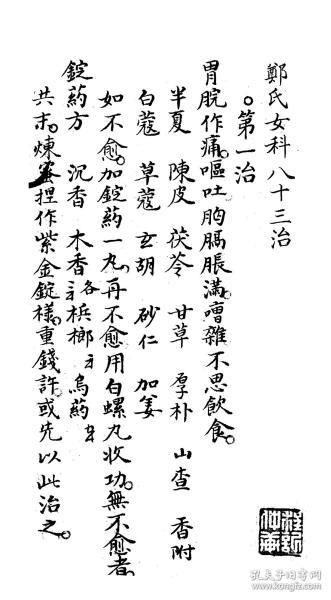 鄭氏女科八十三治
第一治
胃脘作痛。嘔吐胸膈脹滿。嘈雜不思飲食。
半夏 陳皮 茯苓 甘草 厚朴 山查 香附
白蔻 草蔻 玄胡 砂仁 加姜
如不愈。加錠葯一丸。再不愈用白螺丸收功。無不愈者。
錠葯方 沉香 木香 各 梹榔 烏葯
共末。煉蜜捏作紫金錠樣。重錢許。或先以此治之。
孔夫子旧书网